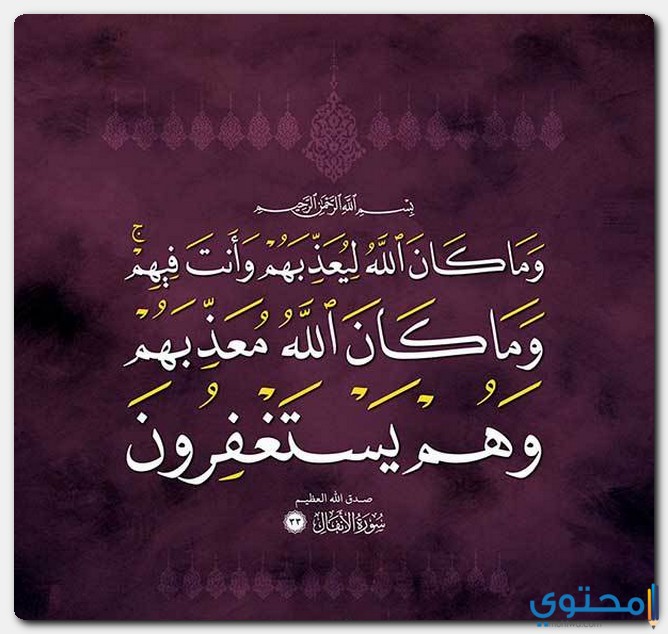 بِسْمِ اللَّهِ الرَّحْمَٰنِ الرَّحِيمِ
وَمَا كَانَ ٱللَّهُ لِيُعَذِّبَهُمْ وَأَنتَ فِيهِمْ ۚ
وَمَا كَانَ ٱللَّهُ مُعَذِّبَهُمْ
وَهُمْ يَسْتَغْفِرُونَ
صدق الله العظيم
سُورَةُ الأَنفَال ٣٣
محتوي